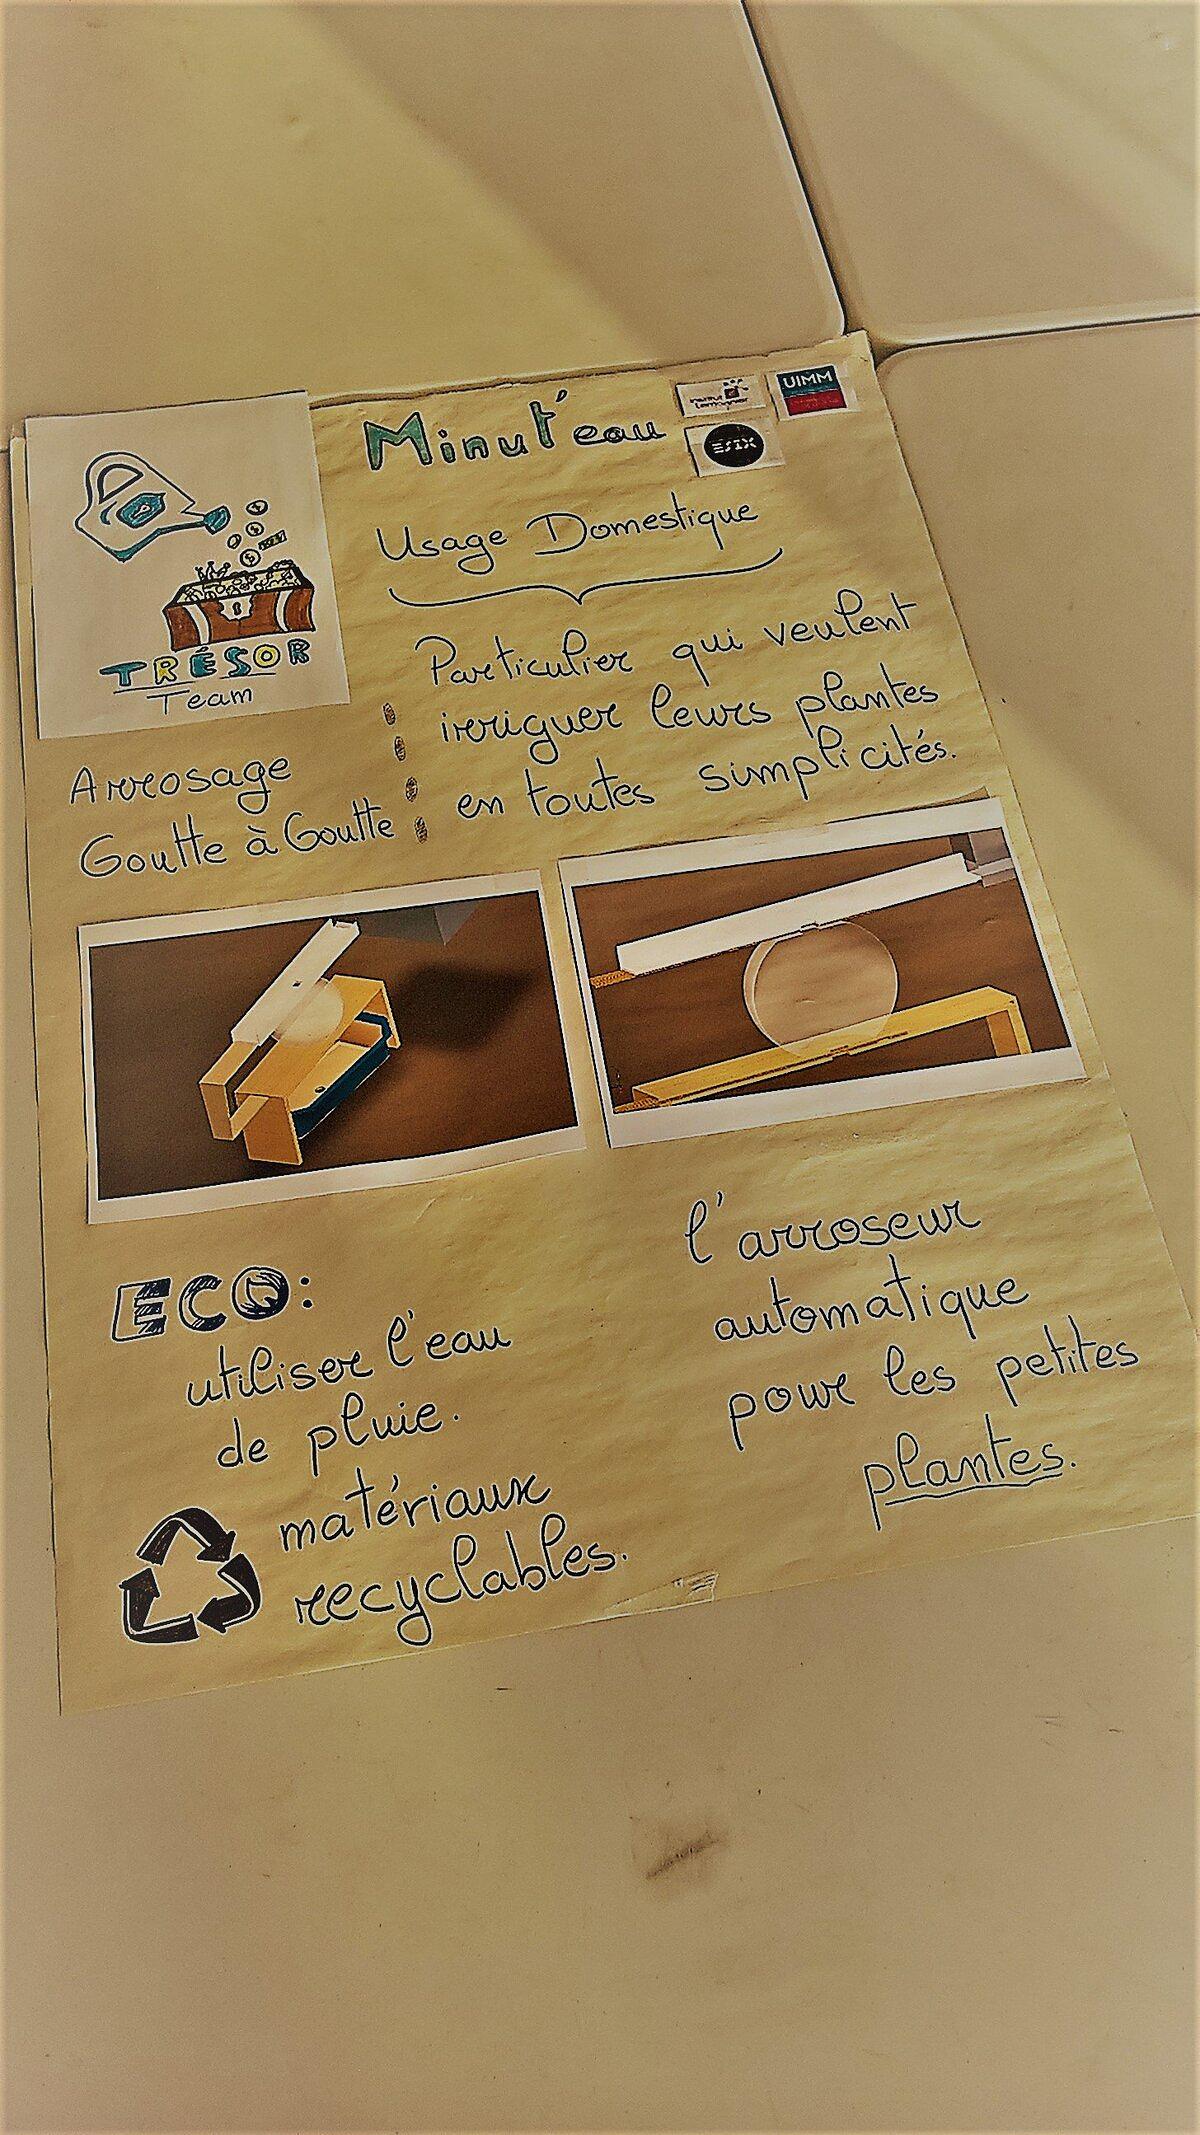 Minut'eau
institut
Lemonnier
UIMM
ESIX
Usage Domestique
TRÉSOR
Team
Particulier qui veulent
irriguer leurs plantes
en toutes simplicités.
Arrosage
Goutte à Goutte
ECO:
utiliser l'eau
de pluie.
matériaux
recyclables.
l'arroseur
automatique
pour les petites
plantes.